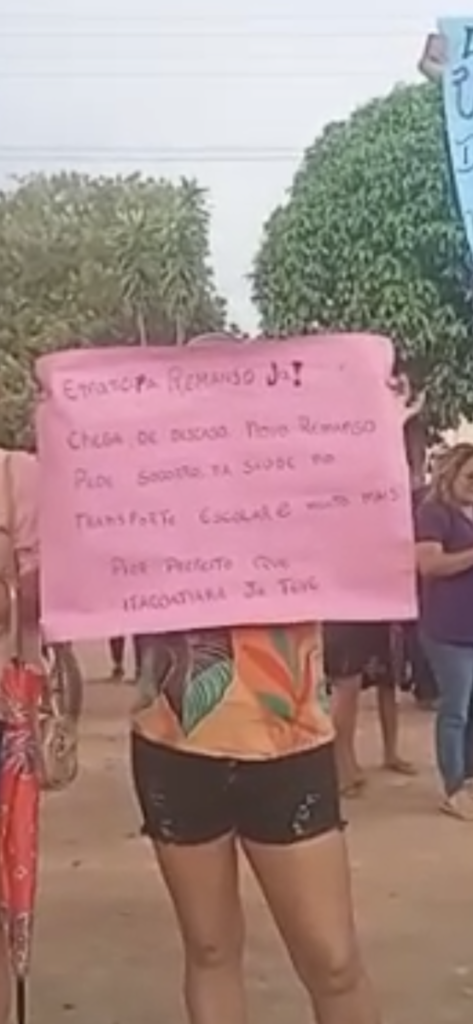 EMANCIPA REMANSO JÁ!
CHEGA DE DESCASO NOVO REMANSO
PEDE SOCORRO NA SAÚDE NO
TRANSPORTE ESCOLAR E MUITO MAIS
PIOR PREFEITO QUE
ITACOATIARA JÁ TEVE